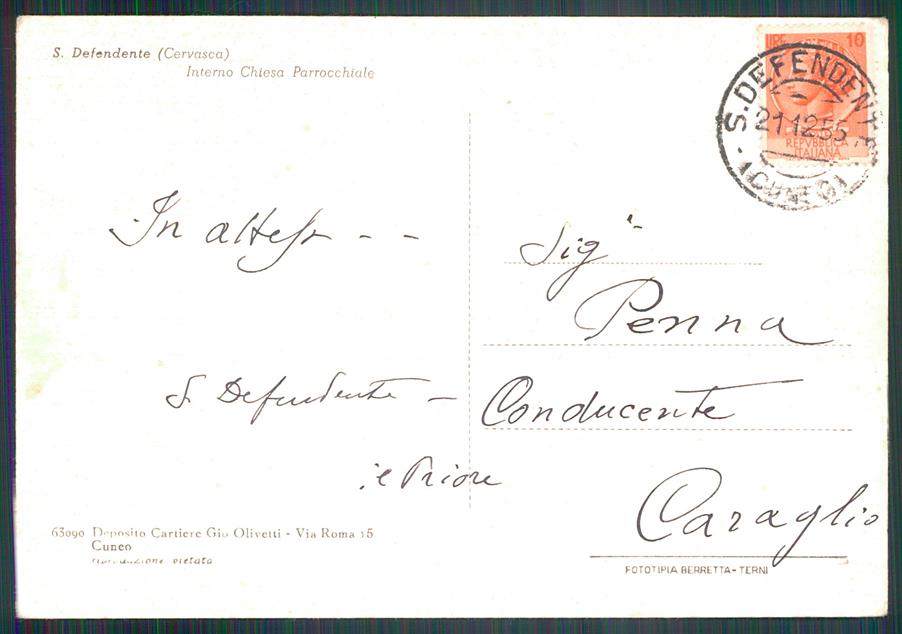 S. Defendente (Cervasca)
Interno Chiesa Parrocchiale
LIRE 10
REPVBBLICA
ITALIANA
S. DEFENDENTE
21.12.55
(CUNEO)
In attesa - -
S. Defendente -
il Priore
Sig.
Penna
Conducente
Caraglio
63090 Deposito Cartiere Gio Olivetti - Via Roma 15
Cuneo
riproduzione vietata
FOTOTIPIA BERRETTA - TERNI